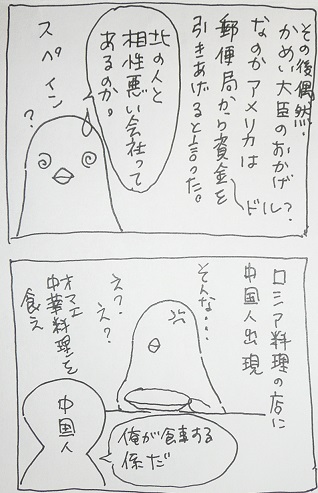 その後偶然、
かめい大臣のおかげ
なのかアメリカは
郵便局から資金を
引きあげると言った。
ドル?
北の人と
相性悪い会社って
あるのか。
スペイン
?
ロシア料理の店に
中国人出現
そんな…
え?
え?
オマエ
中華料理を
食え
中国人
俺が食事する
係だ